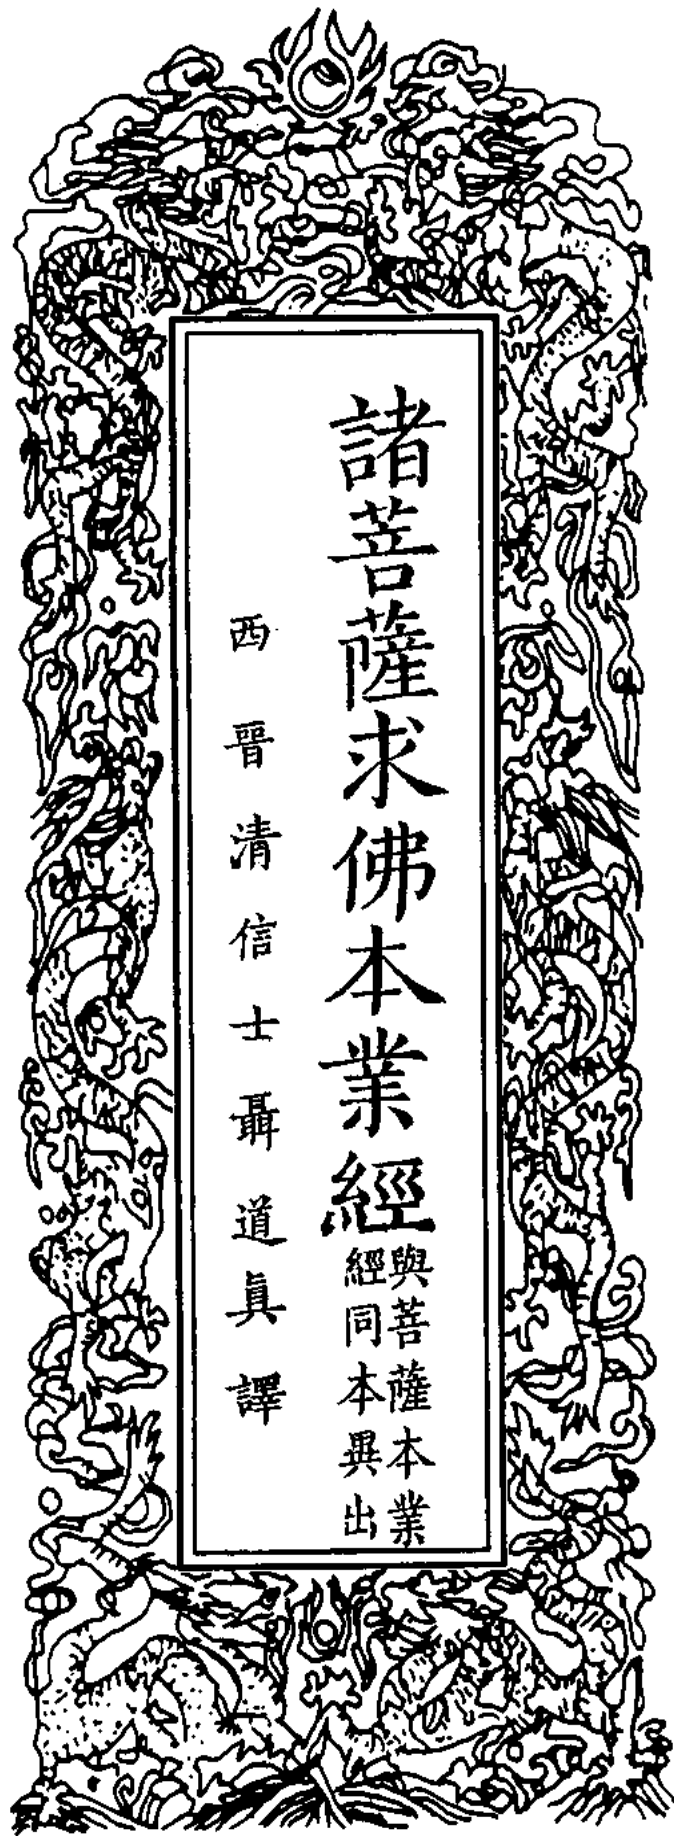 諸菩薩求佛本業經
與菩薩本業
經同本異出
西晉清信士聶道真譯